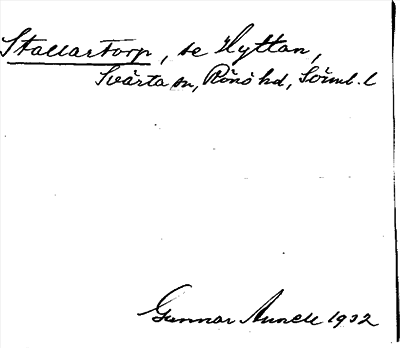 Stallartorp, se Hyttan,
Svärta sn, Rönö hd, Sörml. l
Gunnar 1932